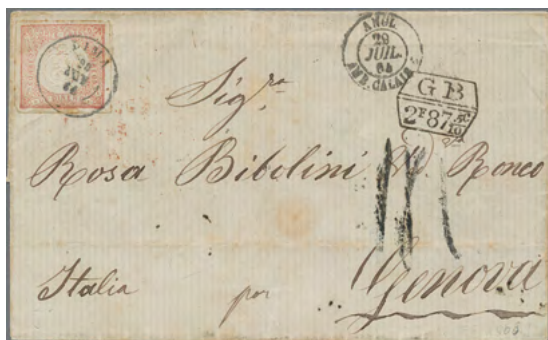 LIMA
ANGL.
29
JUIL.
AMB. CALAIS
GB
2F87
Sig.ra
Rosa Bibolini Ronco
Italia por Genova